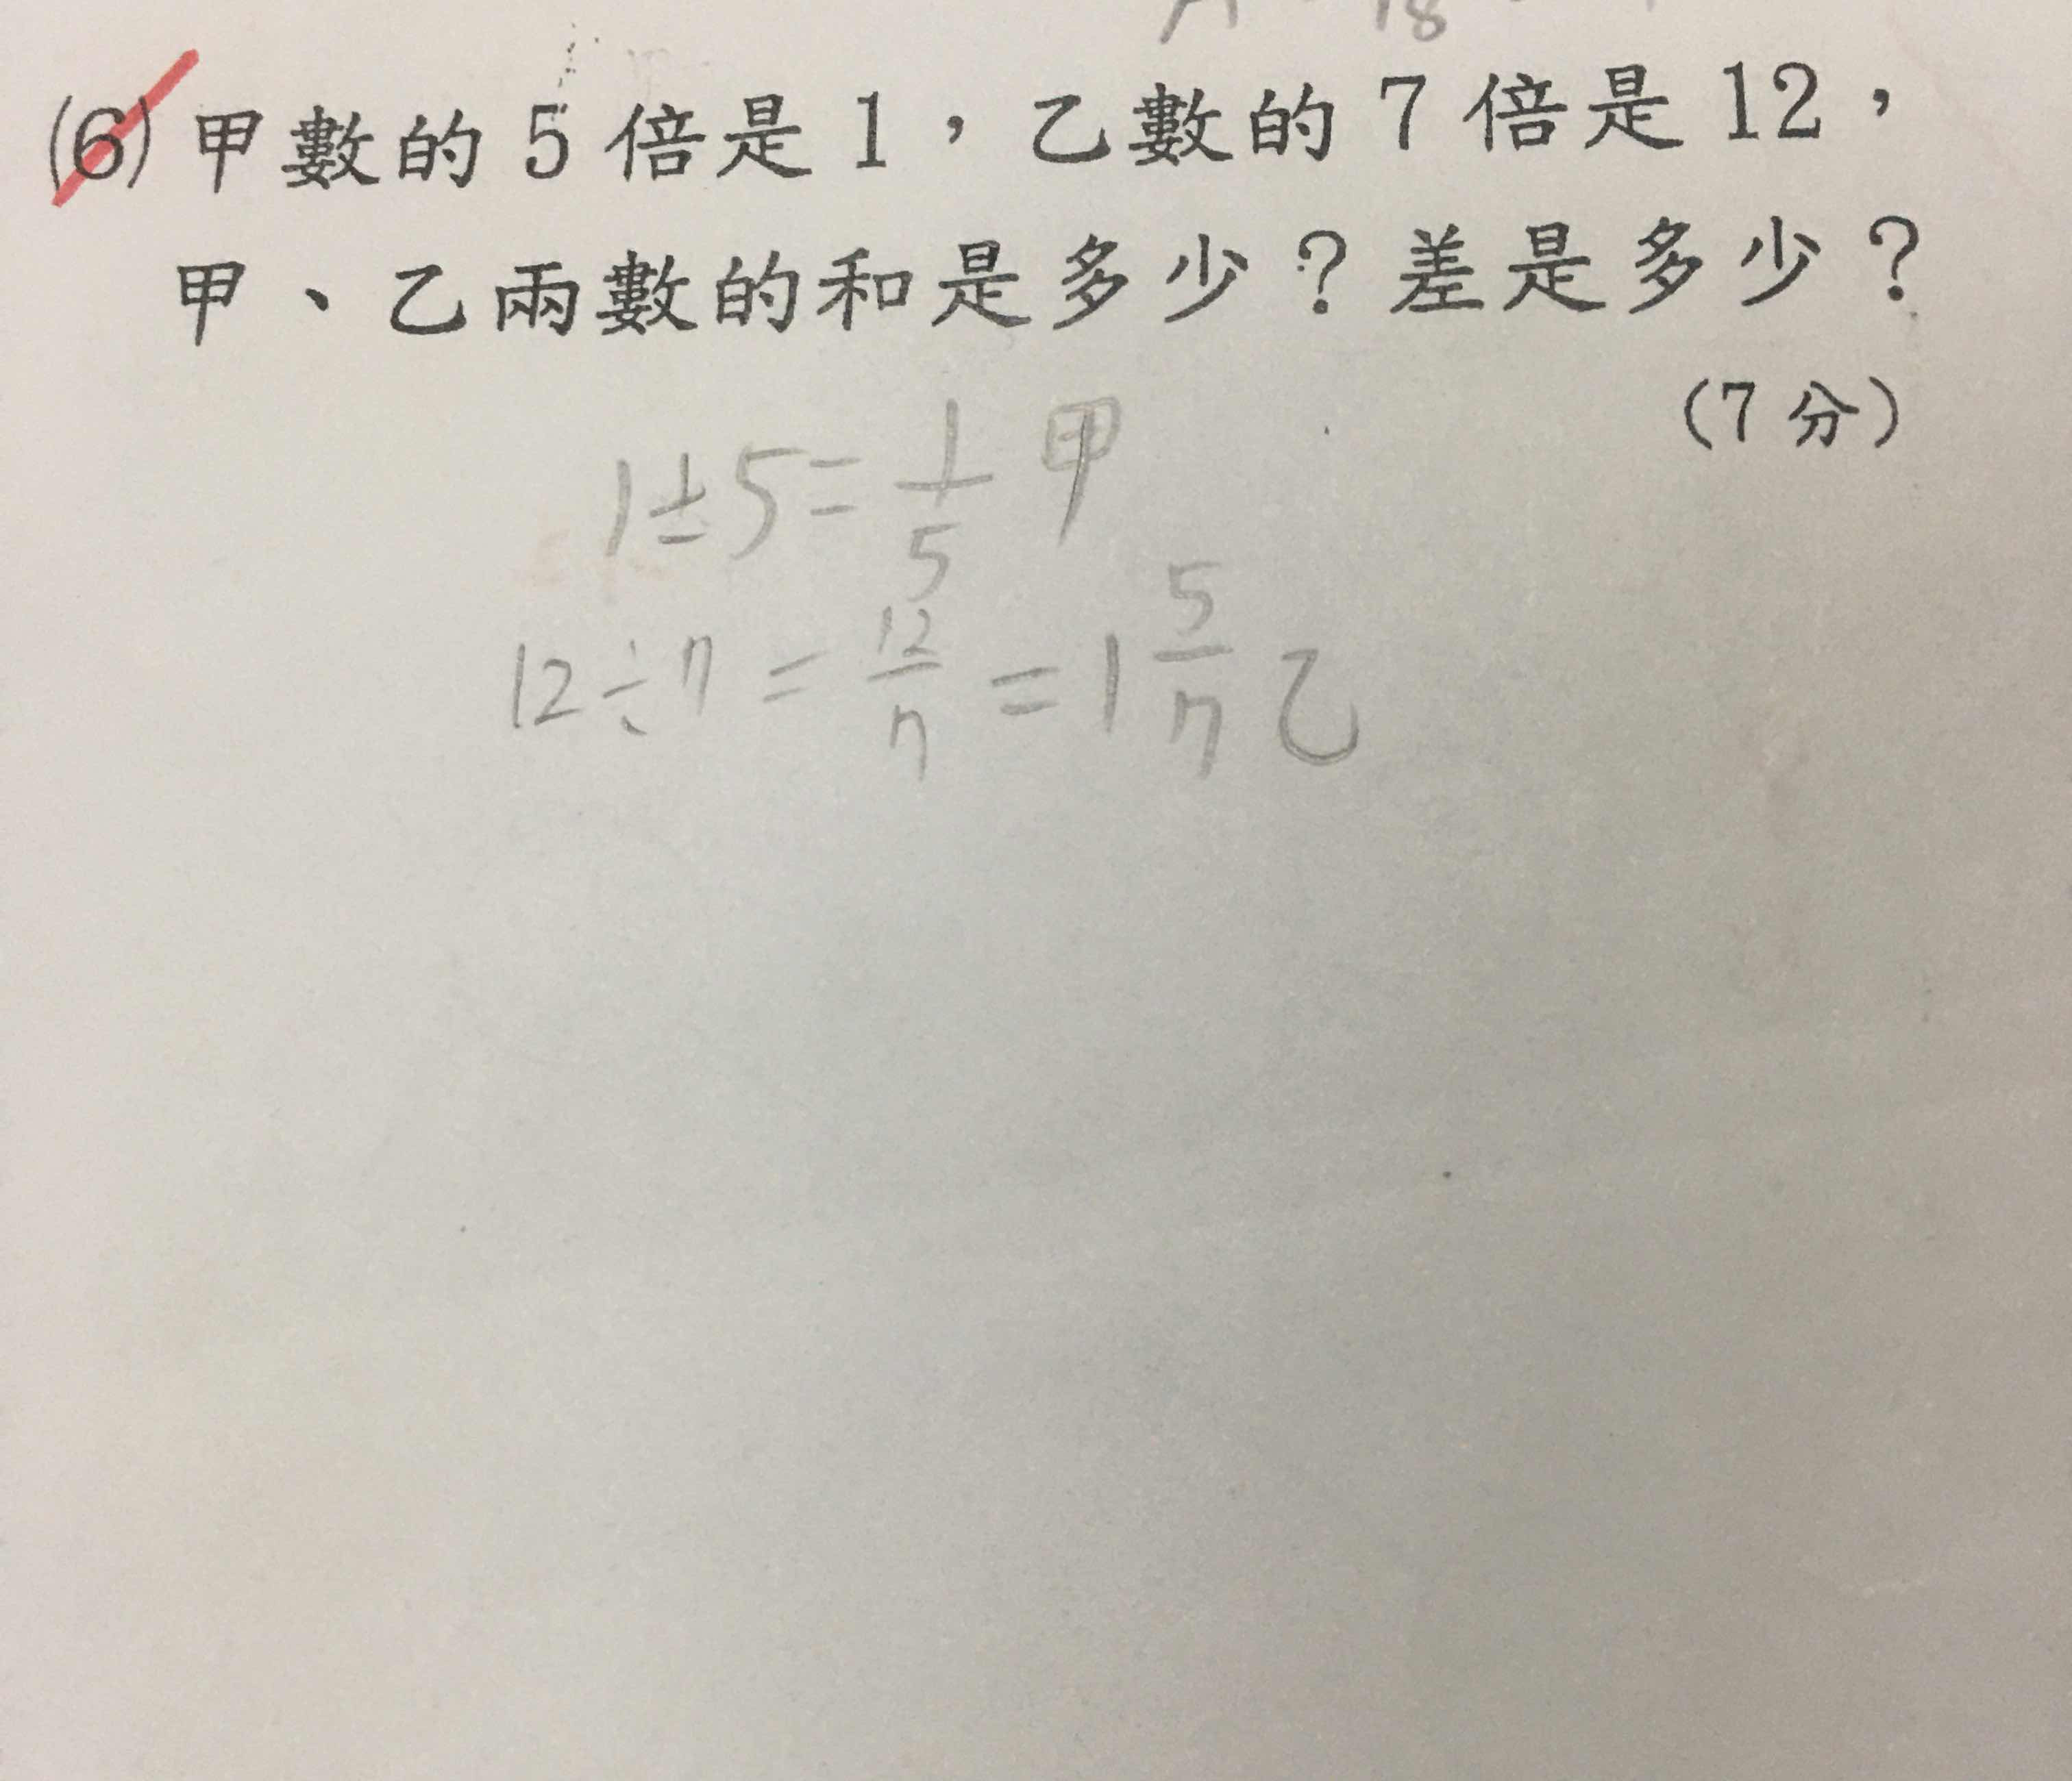 18
(6) 甲數的 5 倍是 1，乙數的 7 倍是 12，
甲、乙兩數的和是多少？差是多少？
(7 分)
1÷5=1/5 甲
12÷7=12/7=1 5/7 乙